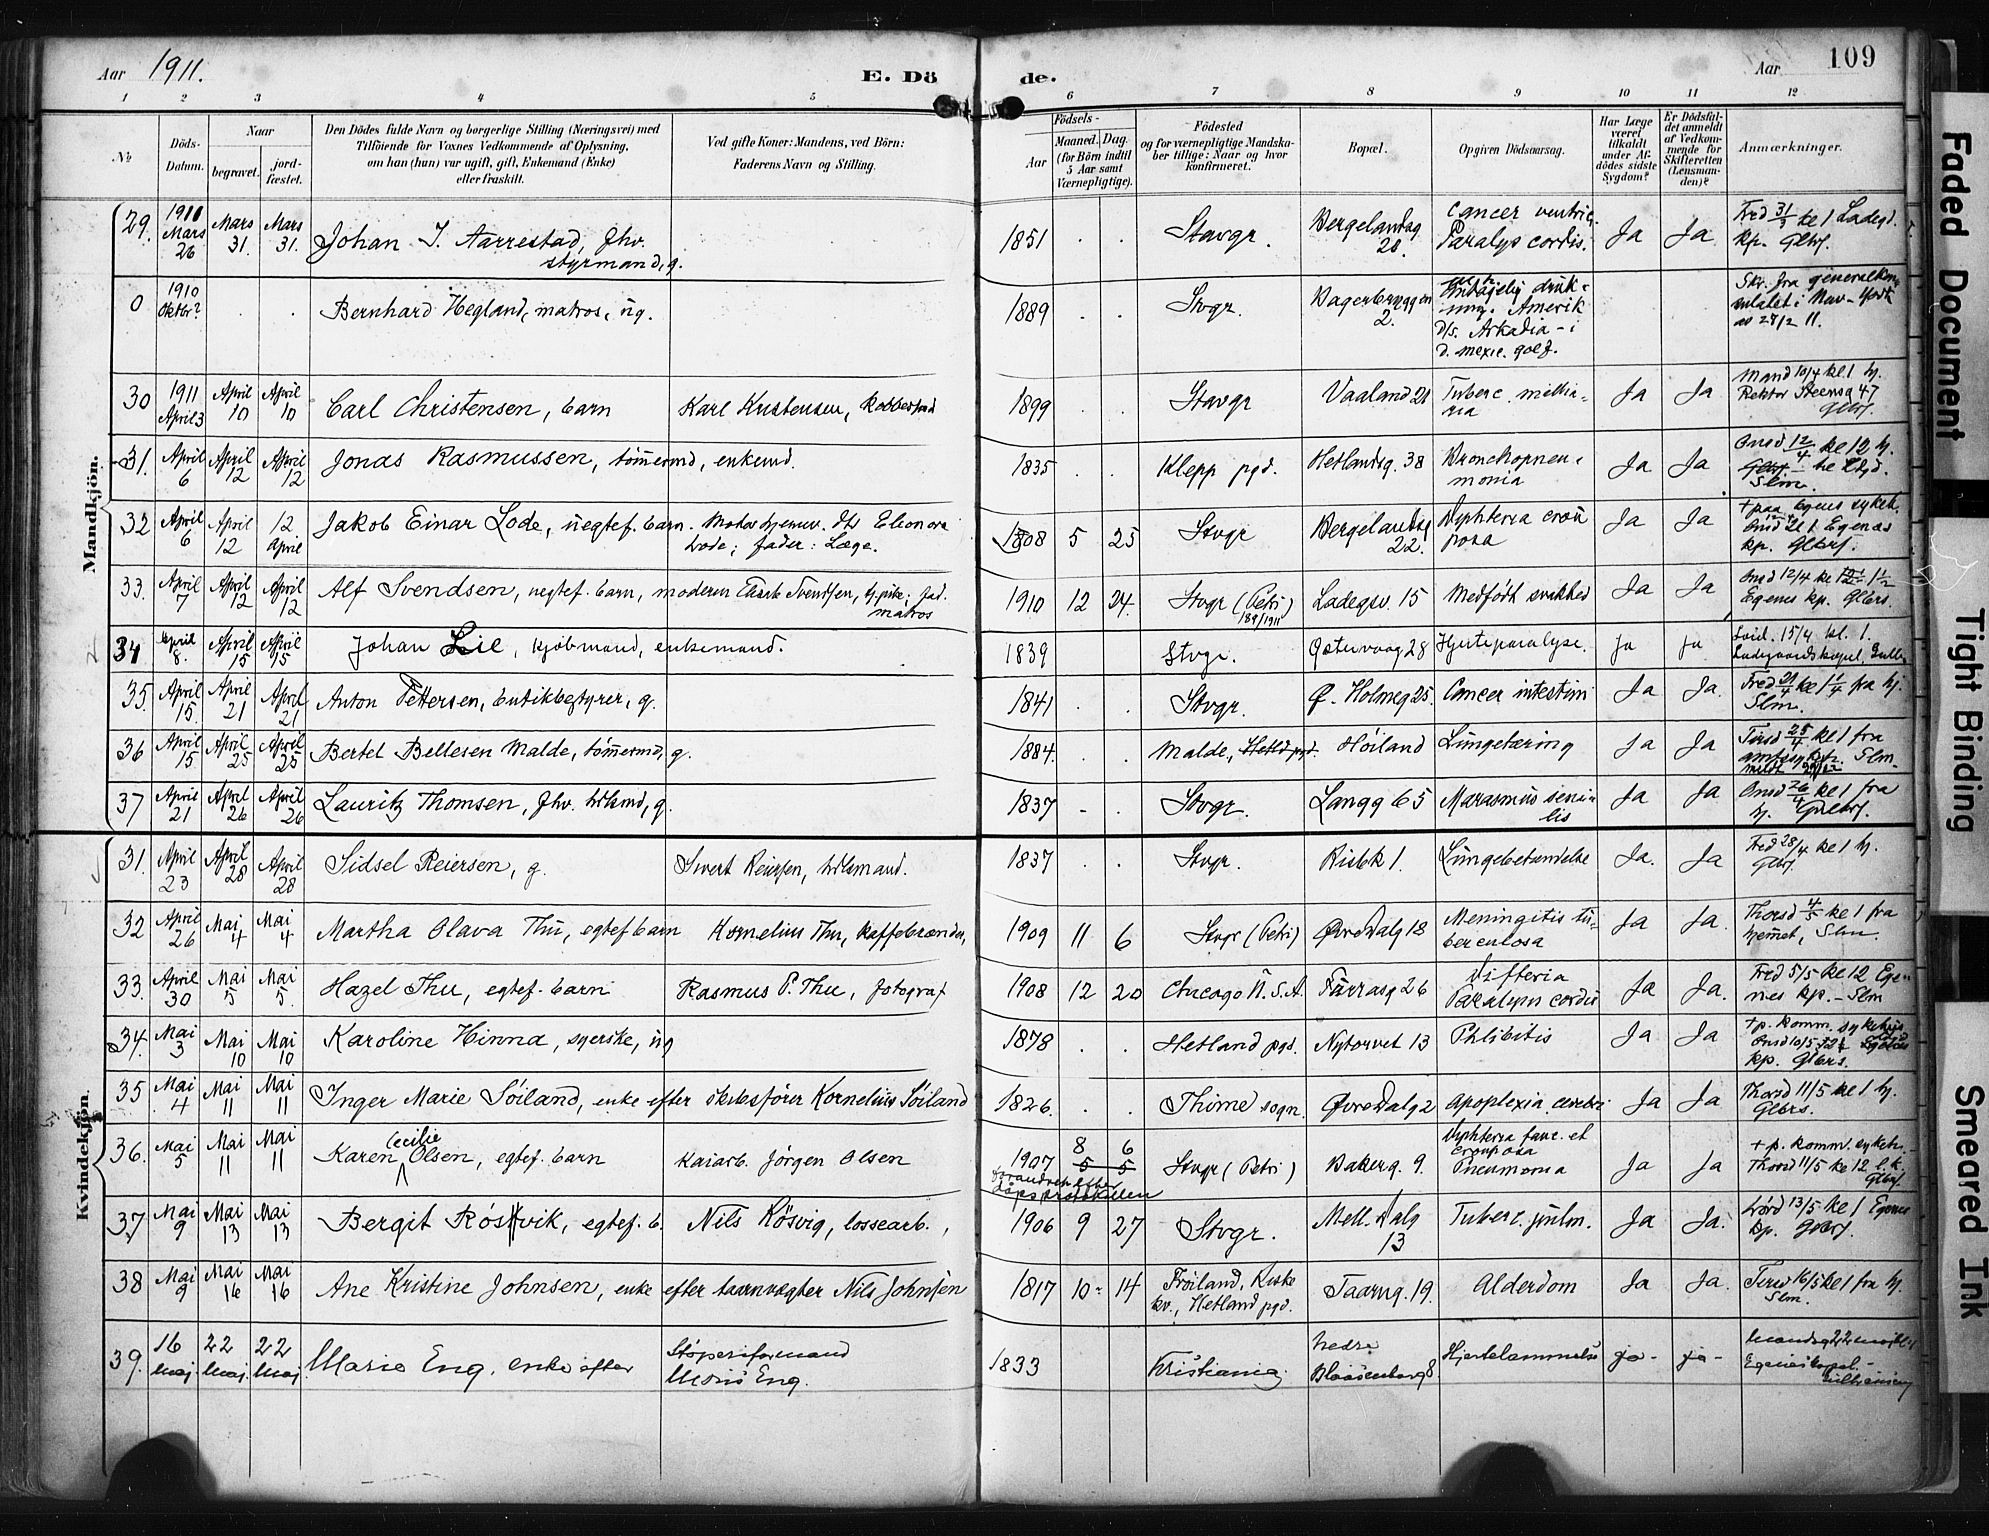 Aar 1911. E. Dö de. Aar 109
1 2 3 4 5 6 7 8 9 10 11 12
№ Döds-Datum. Naar begravet. jord-fæstet. Den Dödes fulde Navn og borgerlige Stilling (Næringsvei) med Tilföiende for Voxnes Vedkommende af Oplysning, om han (hun) var ugift, gift, Enkemand (Enke) eller fraskilt. Ved gifte Koner: Mandens, ved Börn: Faderens Navn og Stilling. Födsels- Aar Maaned. Dag. (for Börn indtil 5 Aar samt Værnepligtige). Födested og for værnepligtige Mandskaber tillige: Naar og hvor konfirmeret. Bopæl. Opgiven Dödsaarsag. Har Læge været tilkaldt under Afdödes sidste Sygdom? Er Dödsfaldet anmeldt af Vedkommende for Skifteretten (Lensmanden)? Anmærkninger.
Mandkjön.
29. 1911 Mars 26 Mars 31. Mars 31. Johan I. Aarrestad, fhv. styrmand, g. 1851 . . Stavgr. Bergelandsg 28. Cancer ventric. Paralys cordis. Ja Ja Fred 31/3 kl 1 Ladegd. kp. Glbrf.
0 1910 Oktbr? . . Bernhard Hegland, matros, ug. 1889 . . Stvgr. 2. drukning. Amerik D/s. Arkadia - i d. mexic. golf. Skr. fra generalkonsulatet i New-York av 27/2 11.
30 1911 April 3 April 10 April 10 Carl Christensen, barn Karl Kristensen, 1899 . . Stavgr Vaaland 21 Tuberc. milliaria Ja Ja Mand 10/4 kl 1 hj. Rektor Steensg 47 Glbrf.
31. April 6 April 12 April 12 Jonas Rasmussen, tømmermd, enkemd. 1835 . . Klepp pgd. Hetlandsg. 38 Bronchopneumonia Ja Ja Onsd 12/4 kl 12 hj. Slm.
32 April 6 April 12 12 April Jakob Einar Lode, uegtef. barn. Moder hjemmev. dtr Eleonora Lode; fader: Læge. 1908 5 25 Stvgr Bergelandsg 22. Dyphteria crouposa Ja Ja + paa Egenes sykeh. Onsd Egenæs kp. Glbrf.
33. April 7 April 12 April 12 Alf Svendsen, uegtef. barn, moderen Svendsen, tj.pike; fad. matros 1910 12 24. Stvgr (Petri) 189/1911 Ladegsv. 15 Medfødt svakhed Ja Ja Onsd 12/4 kl 1½ Egenes kp. Glbrs.
34 April 8. April 15 April 15 Johan Lie, kjøbmand, enkemand. 1839 Stvgr. Østervaag 28 Hjerteparalyse. Ja Ja Lørd. 15/4 kl. 1. Ladegaards kapel,
35. April 15. April 21 April 21 Anton Pettersen, butikbestyrer, g. 1841 . . Stvgr. Ø. Holmeg 25. Cancer intestini Ja Ja. Fred 21/4 kl 1 1/4 fra hj. Slm.
36 April 15 April 25 April 25 Bertel Bellesen Malde, tømmermd, g. 1884. . . Malde, Hetld pgd. Høiland Lungetæring Ja Ja Tirsd 25/4 kl 1 fra Slm.
37 April 21 April 26 April 26 Lauritz Thomsen, fhv. g. 1837 . . Stvgr. Langg 65 Marasmus senilis Ja Ja Onsd 26/4 kl 1 fra hj. Glbrf.
Kvindekjön.
31. April 23 April 28 April 28 Sidsel Reiersen, g. Sivert Reiersen, 1837 . . Stvgr. Risbk 1. Lungebetændelse Ja. Ja Fred 28/4 kl 1 hj. Glbrf.
32 April 26 Mai 4 Mai 4 Martha Olava Thu, egtef barn Kornelius Thu, kaffebrænder, 1909 11 6 Stvgr (Petri) Øvre Dalg 18 Meningitis tuberculosa Ja Ja. Thorsd 4/5 kl 1 fra hjemmet, Slm.
33. April 30 Mai 5 Mai 5. Hazel Thu, egtef. barn Rasmus P. Thu, fotograf 1908 12 20 Chicago U.S.A. Færrasg 26 Difteria Paralysis cordis Ja Ja. Fred 5/5 kl 12 Egenes kp. - Slm
34. Mai 3 Mai 10 Mai 10 Karoline Hinna, syerske, ug 1878 . . Hetland pgd. Nytorvet 13 Phlibitis Ja Ja + p. komm. sykehus Onsd 10/5 kp. Glbrs.
35 Mai 4 Mai 11 Mai 11 Inger Marie Søiland, enke efter skibsfører Kornelius Søiland 1826. . . Thime sogn. Øvre Dalg 2 Apoplexia cerebri Ja Ja Thorsd 11/5 kl 1 hj. Glbrs.
36. Mai 5 Mai 11 Mai 11 Karen Cecilie Olsen, egtef. barn Kaiarb. Jørgen Olsen 1907 8 6 5 5 forandret efter døpsprotokollen Stvgr (Petri) Bakerg. 9. Dyphteria fauc. et crouposa Pneumonia Ja Ja + p. komm. sykeh. Thorsd 11/5 kl 12 l.k. Glbrf.
37. Mai 9 Mai 13 Mai 13 Bergit Røsvik, egtef. b. Nils Røsvig, lossearb., 1906 9 27 Stvgr. Mell. Dalg 13 Tuberc. pulm. Ja Ja. Lørd 13/5 kl 1 Egenes kp. Glbrf.
38 Mai 9 Mai 16 Mai 16 Ane Kristine Johnsen, enke efter taarnvægter Nils Johnsen 1817 10 14 Frøiland, Riske kv., Hetland pgd. Taarng. 19. Alderdom Ja Ja. Tirsd 16/5 kl 1 fra hj. Slm.
39. 16 Maj. 22 Maj. 22 Maj Marie Eng. enke efter Støperiformand Moris Eng. 1833 Kristiania Nedre Blaasenborg 8. Hjertelammelse ja - ja - Mandag 22 maj kl 1 Egenes kapel. -
Faded Document
Tight Binding
Smeared Ink